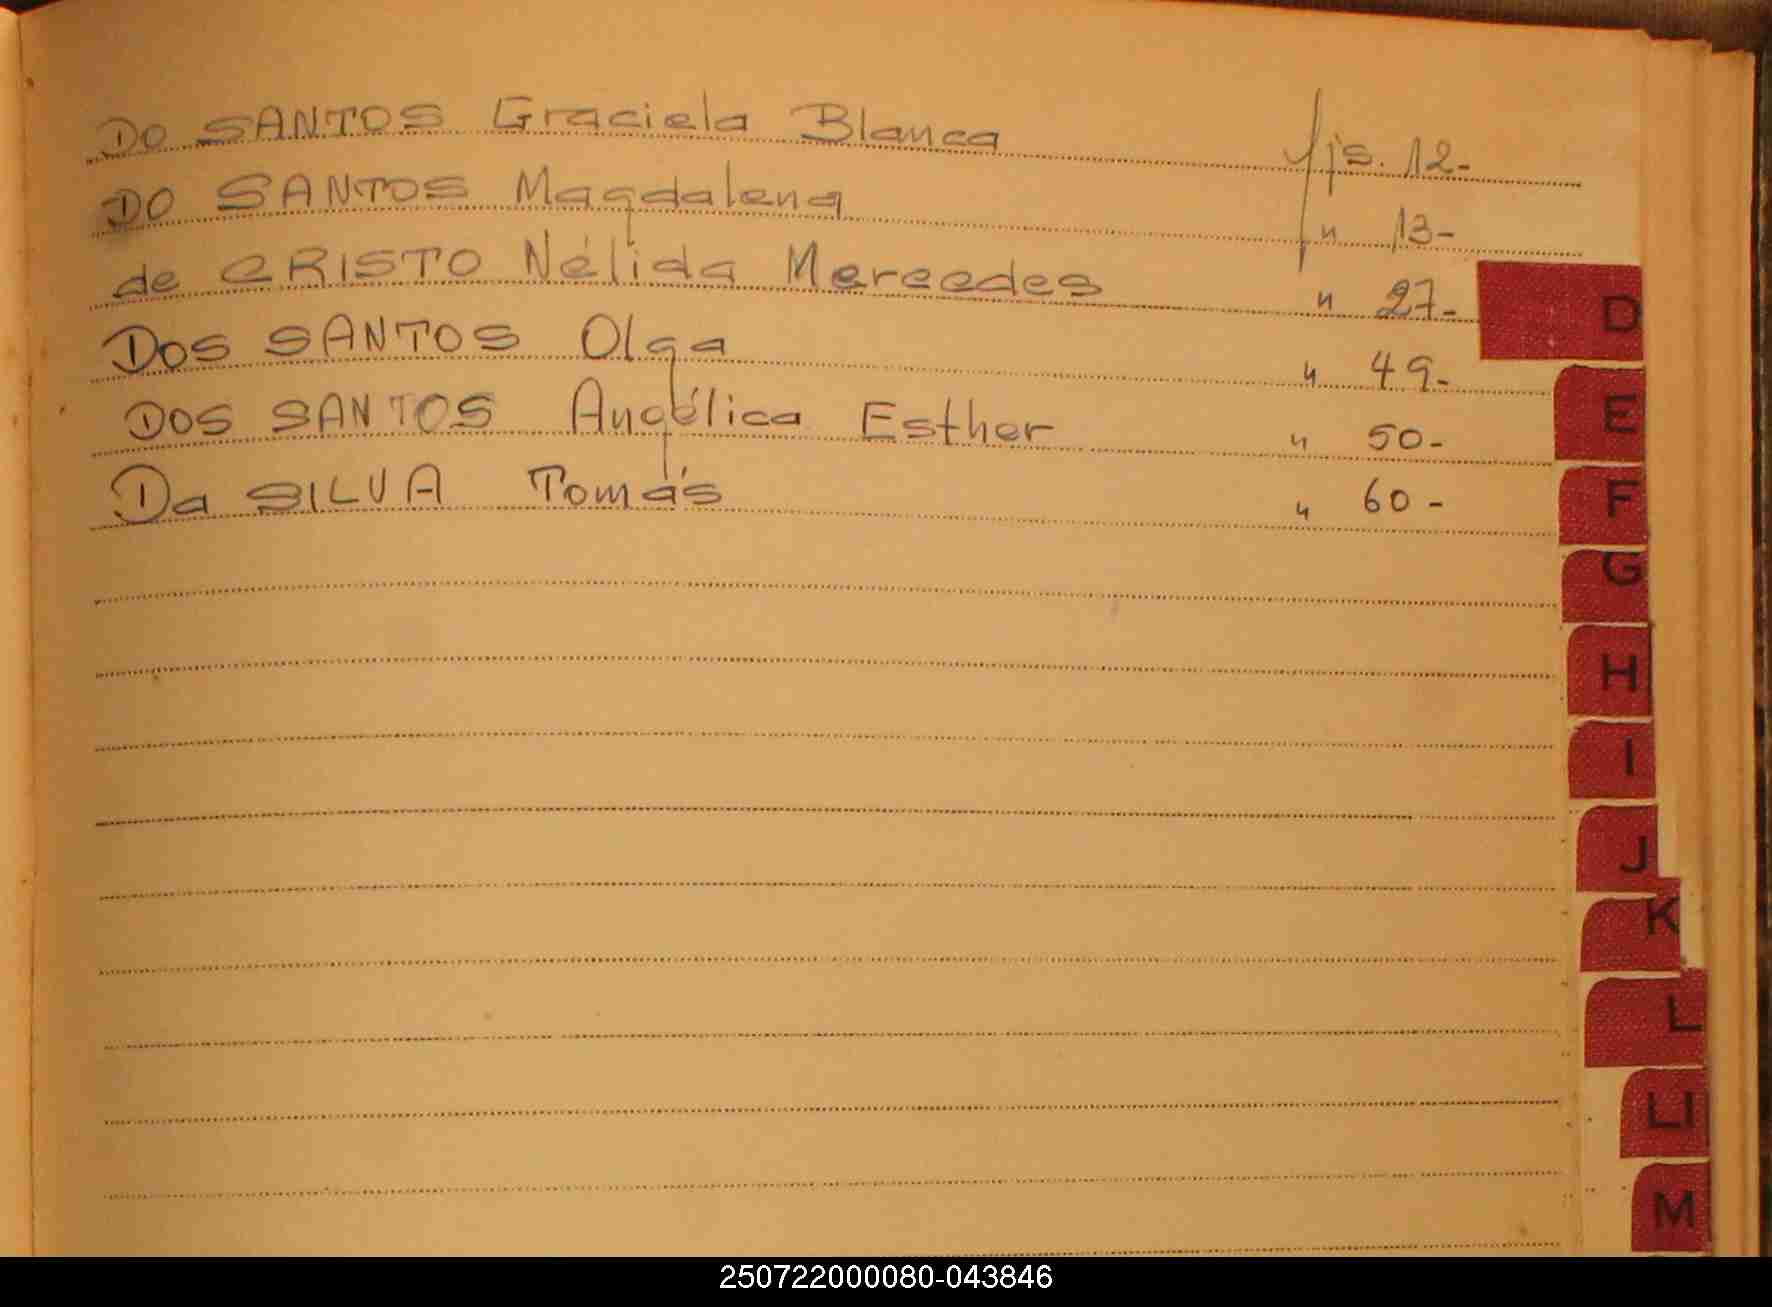 Do SANTOS Graciela Blanca fjs. 12-
DO SANTOS Magdalena " 13-
de CRISTO Nélida Mercedes " 27-
Dos SANTOS Olga " 49-
DOS SANTOS Angélica Esther " 50-
Da SILVA Tomás " 60-
D
E
F
G
H
I
J
K
L
Ll
M
250722000080-043846